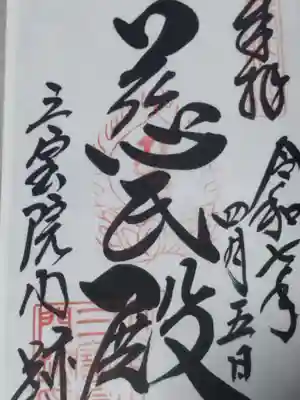 奉拝
令和七年
四月五日
慈氏殿
三宝院門跡